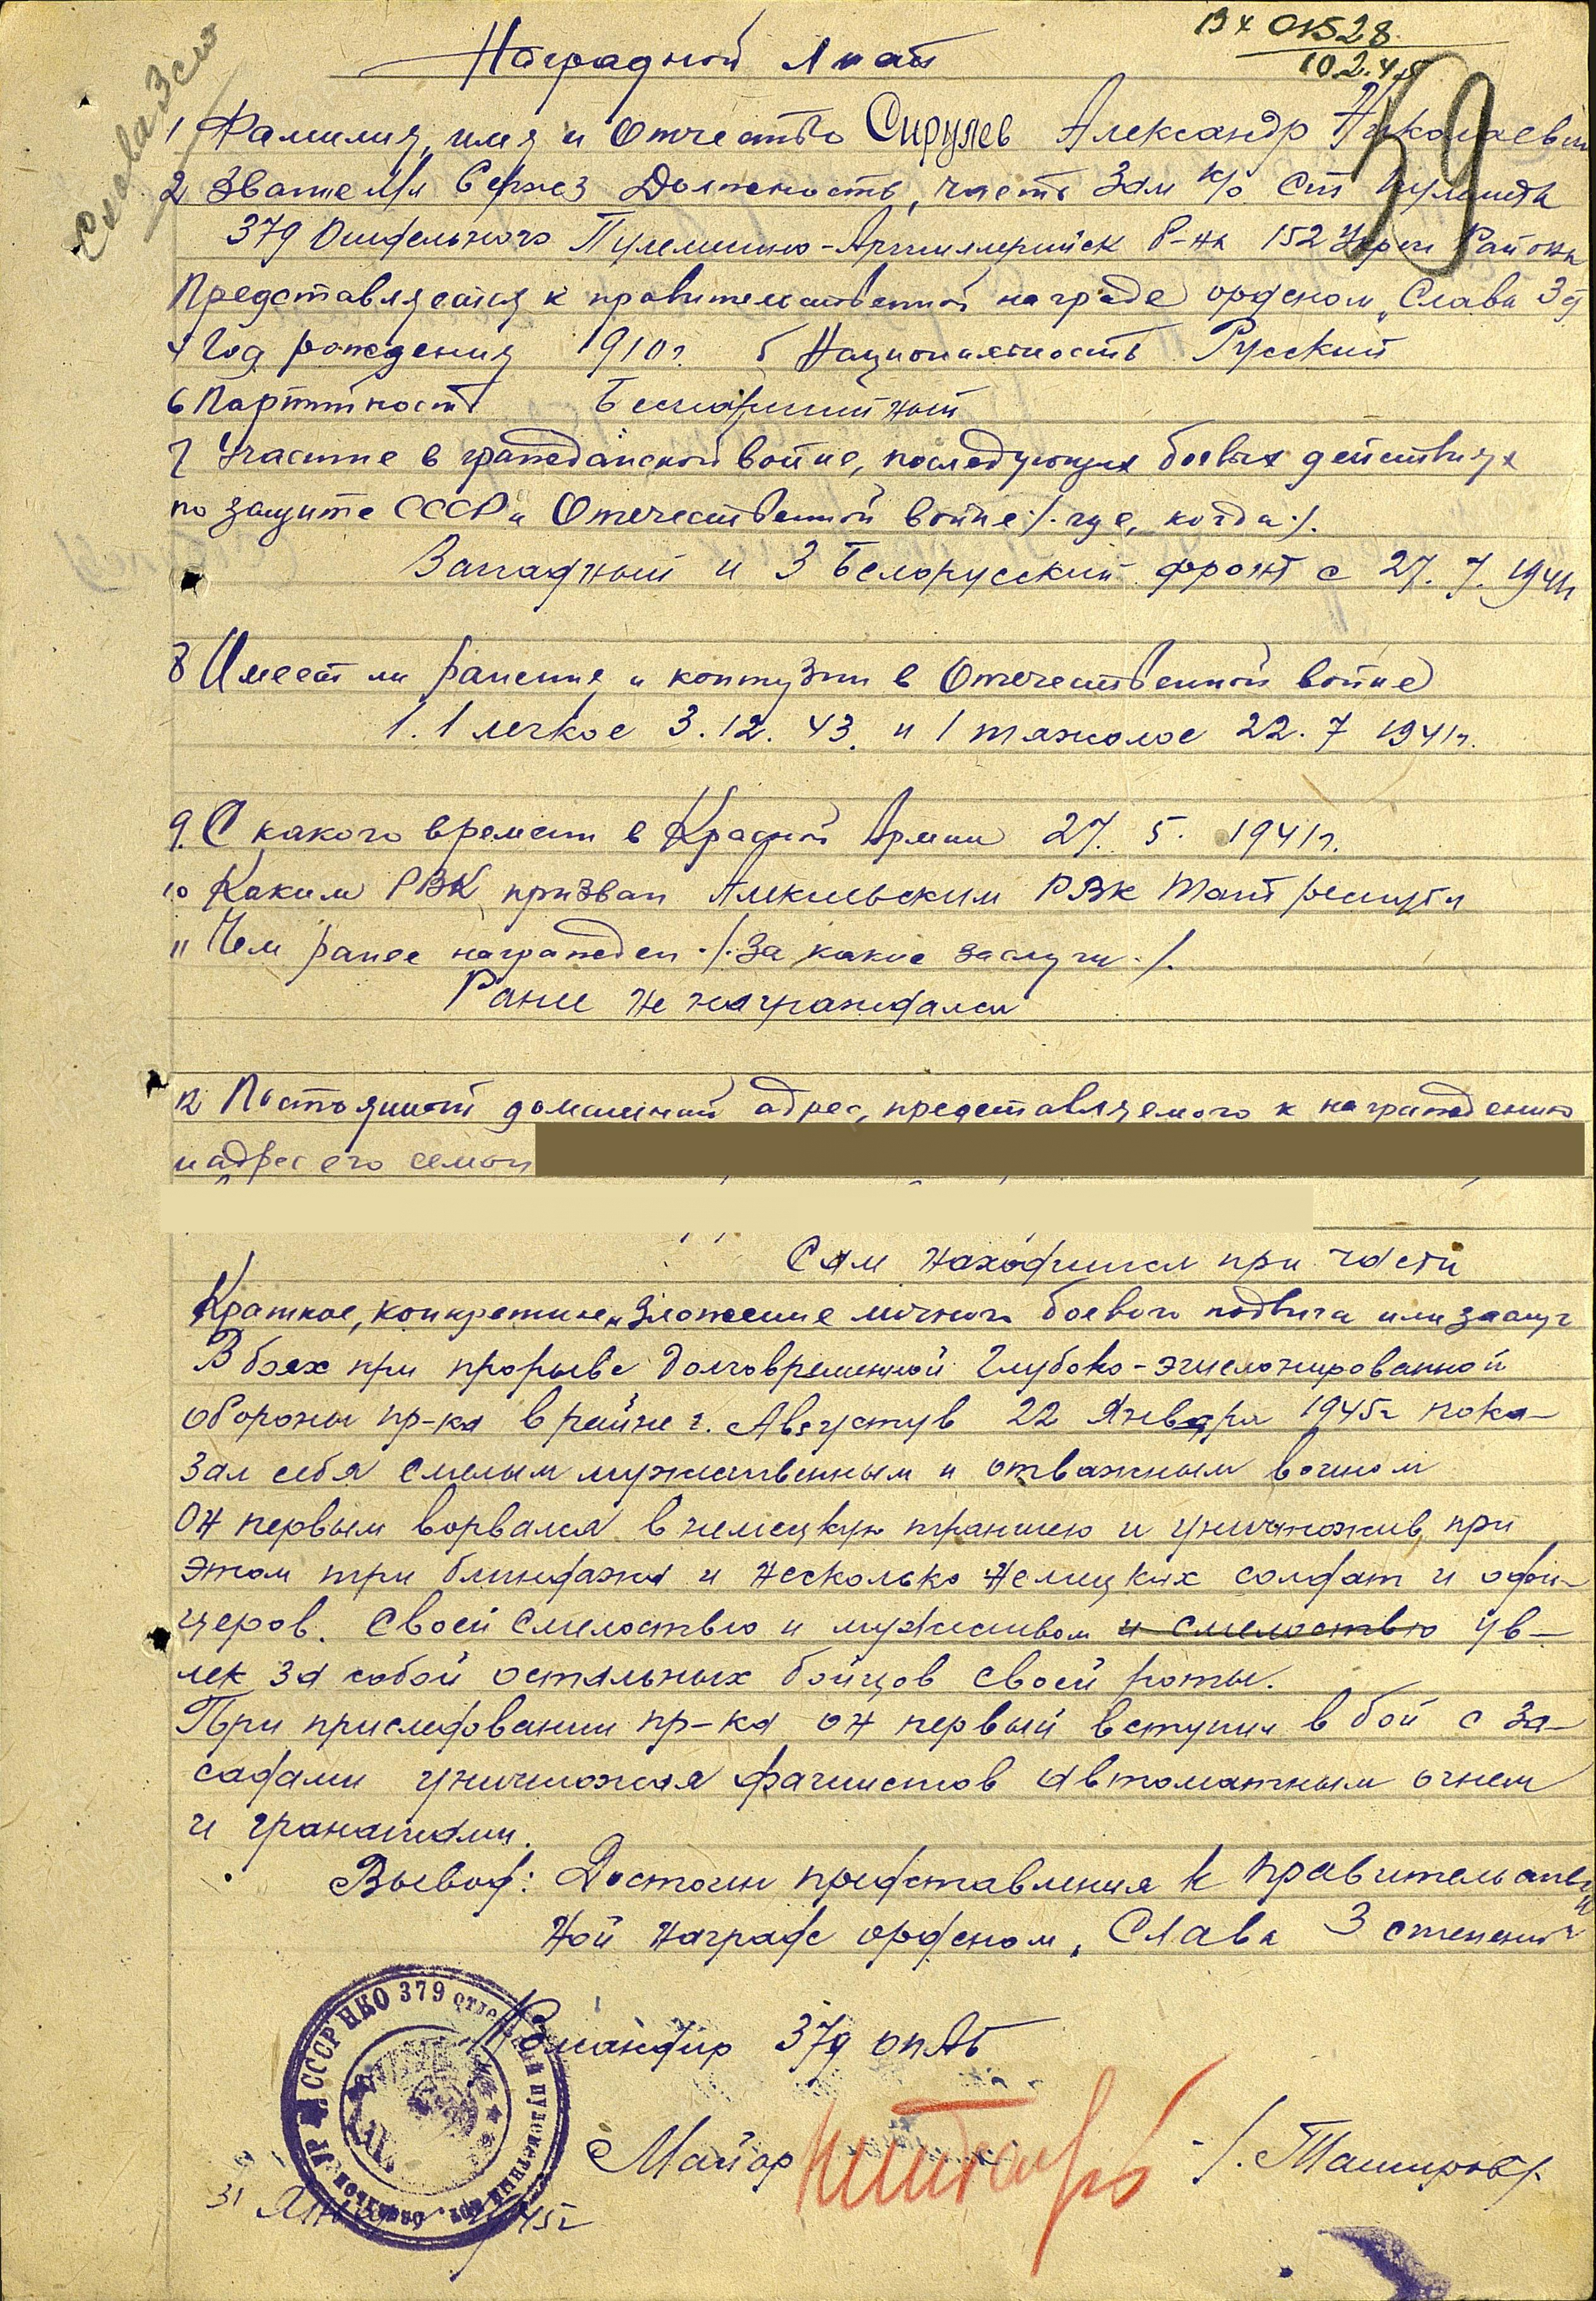 Вх 01528
10.2.45
Слава 3 ст
59
Наградной лист
1 Фамилия, имя и Отчество Сирулев Александр Николаевич
2 Звание Мл Сержез Должность, часть Зам к/о Ст пулемета
379 Отдельного Пулеметно-Артиллерийск б-на 152 Укреп Района
Представляется к правительственной награде орденом „Слава 3 ст
4 Год рождения 1910г. 5 Национальность Русский
6 Партийность Беспартийный
7 Участие в гражданской войне, последующих боевых действиях
по защите СССР и Отечественной войне /. где, когда ./.
Западный и 3 Белорусский фронт с 27. 7. 1941г
8 Имеет ли ранения и контузии в Отечественной войне
1. 1 легкое 3.12.43. и 1 тяжолое 22.7 1941г.
9. С какого времени в Красной Армии 27. 5. 1941г.
10 Каким РВК призван РВК Тат республ
11 Чем ранее награжден ./. За какие заслуги ./.
Ранее не награждался
12 Постоянный домашний адрес, представляемого к награждению
и адрес его семьи
Сам находится при части
Краткое, конкретное изложение личного боевого подвига или заслуг
В боях при прорыве долговременной глубоко-эшелонированной
обороны пр-ка в районе г. Августув 22 Января 1945г пока-
зал себя смелым мужественным и отважным воином
Он первым ворвался в немецкую траншею и уничтожив при
этом три блиндажа и несколько немецких солдат и офи-
церов. Своей смелостью и мужеством и смелостью ув-
лек за собой остальных бойцов своей роты.
При приследовании пр-ка он первый вступил в бой с за-
садами уничтожая фашистов автоматным огнем
и гранатами.
Вывод: Достоин представления к правительствен
ной награде орденом „Слава 3 степени"
Командир 379 ОПАБ
СССР НКО 379 отдельный пулеметный
Майор /. Таширов /.
31 Января 1945г